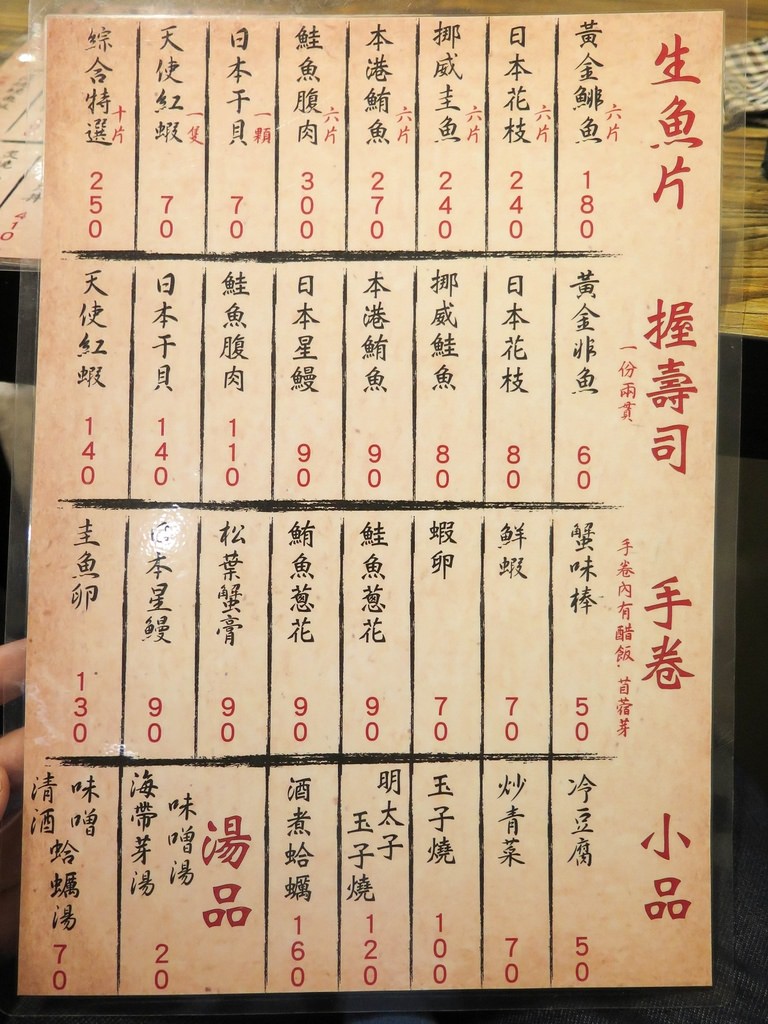 生魚片
黃金鯡魚 六片 180
日本花枝 六片 240
挪威圭魚 六片 240
本港鮪魚 六片 270
鮭魚腹肉 六片 300
日本干貝 一顆 70
天使紅蝦 一隻 70
綜合特選 十片 250
握壽司
一份兩貫
黃金非魚 60
日本花枝 80
挪威鮭魚 80
本港鮪魚 90
日本星鰻 90
鮭魚腹肉 110
日本干貝 140
天使紅蝦 140
手卷
手卷內有醋飯.苜蓿芽
蟹味棒 50
鮮蝦 70
蝦卵 70
鮭魚蔥花 90
鮪魚蔥花 90
松葉蟹膏 90
日本星鰻 90
圭魚卵 130
小品
冷豆腐 50
炒青菜 70
玉子燒 100
明太子
玉子燒 120
酒煮蛤蠣 160
湯品
味噌湯
海帶芽湯 20
味噌
清酒 蛤蠣湯 70
410